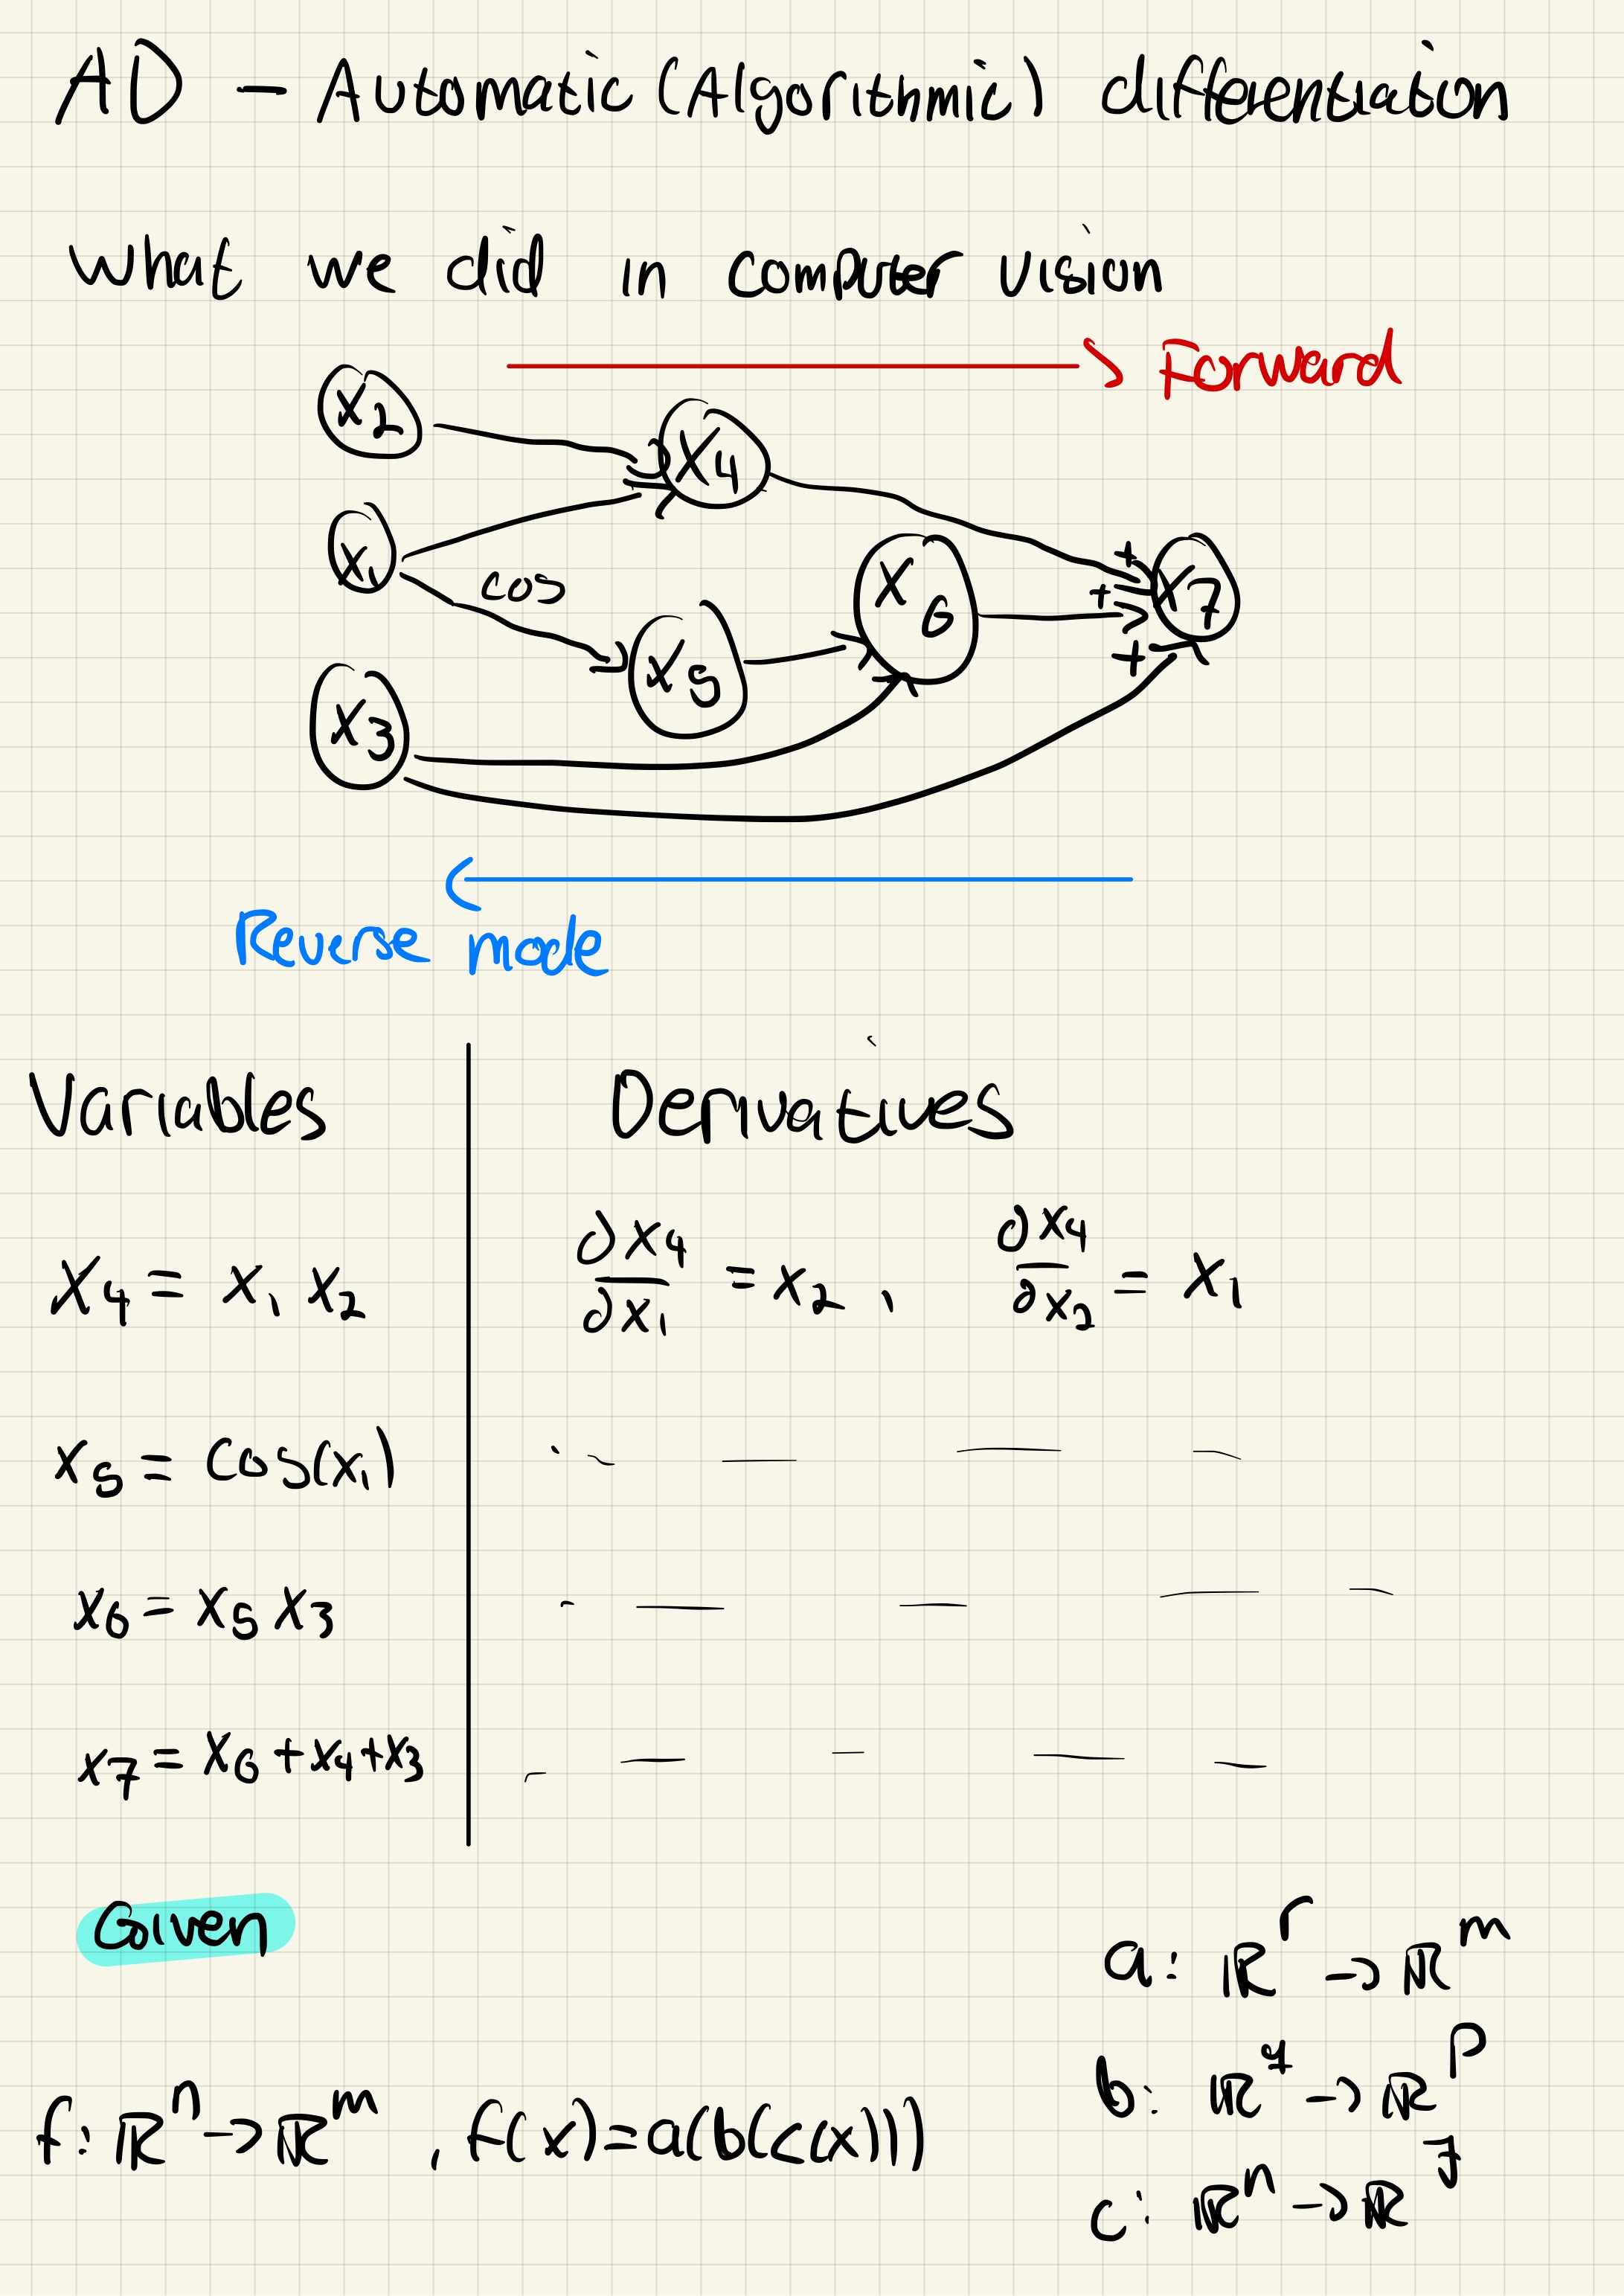 AD - Automatic (Algorithmic) differentiation
What we did in computer vision
Forward
x2
x4
x1
cos
x6
x7
+
+
+
x5
x3
Reverse mode
Variables Derivatives
x4 = x1 x2 ∂x4/∂x1 = x2 , ∂x4/∂x2 = x1
x5 = cos(x1)
x6 = x5 x3
x7 = x6 + x4 + x3
Given
a: ℝ^r → ℝ^m
b: ℝ^q → ℝ^p
f: ℝ^n → ℝ^m , f(x) = a(b(c(x)))
c: ℝ^n → ℝ^q